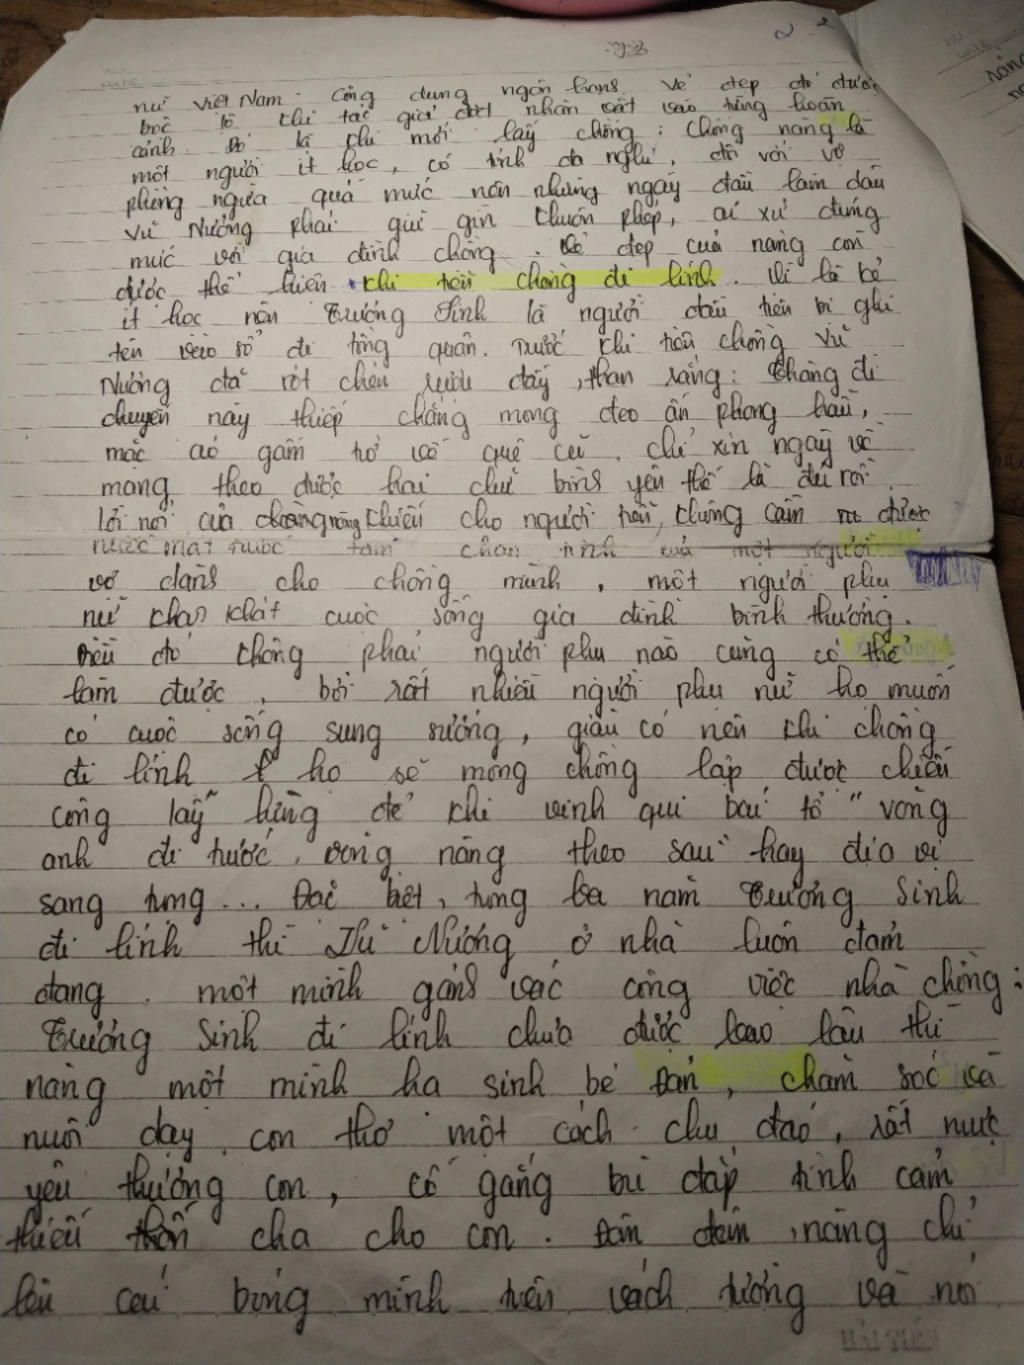 nữ Việt Nam - Công dung ngôn hạnh. Vẻ đẹp đó được
bộc lộ khi tác giả đặt nhân vật vào từng hoàn
cảnh. Đó là khi mới lấy chồng: chồng nàng là
một người ít học, có tính đa nghi, đối với vợ
phòng ngừa quá mức nên những ngày đầu làm dâu
Vũ Nương phải giữ gìn khuôn phép, cư xử đúng
mực với gia đình chồng. Vẻ đẹp của nàng còn
được thể hiện khi tiễn chồng đi lính. Vì là kẻ
ít học nên Trương Sinh là người đầu tiên bị ghi
tên vào sổ đi tòng quân. Trước khi tiễn chồng Vũ
Nương đã rót chén rượu đầy, than rằng: Chàng đi
chuyến này thiếp chẳng mong đeo ấn phong hầu,
mặc áo gấm trở về quê cũ, chỉ xin ngày về
mang theo được hai chữ bình yên thế là đủ rồi.
lời nói của nàng khiến cho người tiễn, chúng cảm được
nước mắt trước tâm chân tình của một người
vợ dành cho chồng mình, một người phụ
nữ khao khát cuộc sống gia đình bình thường.
Điều đó không phải người phụ nào cũng có thể
làm được, bởi rất nhiều người phụ nữ họ muốn
có cuộc sống sung sướng, giàu có nên khi chồng
đi lính họ sẽ mong chồng lập được chiến
công lẫy lừng để khi vinh qui bái tổ "võng
anh đi trước, võng nàng theo sau" hay địa vị
sang trọng... Đặc biệt, trong ba năm Trương Sinh
đi lính thì Vũ Nương ở nhà luôn đảm
đang. một mình gánh vác công việc nhà chồng:
Trương Sinh đi lính chưa được bao lâu thì
nàng một mình hạ sinh bé Đản, chăm sóc và
nuôi dạy con thơ một cách chu đáo, rất mực
yêu thương con, cố gắng bù đắp tình cảm
thiếu thốn cha cho con. Đêm đêm, nàng chỉ
lên cái bóng mình trên vách tường và nói